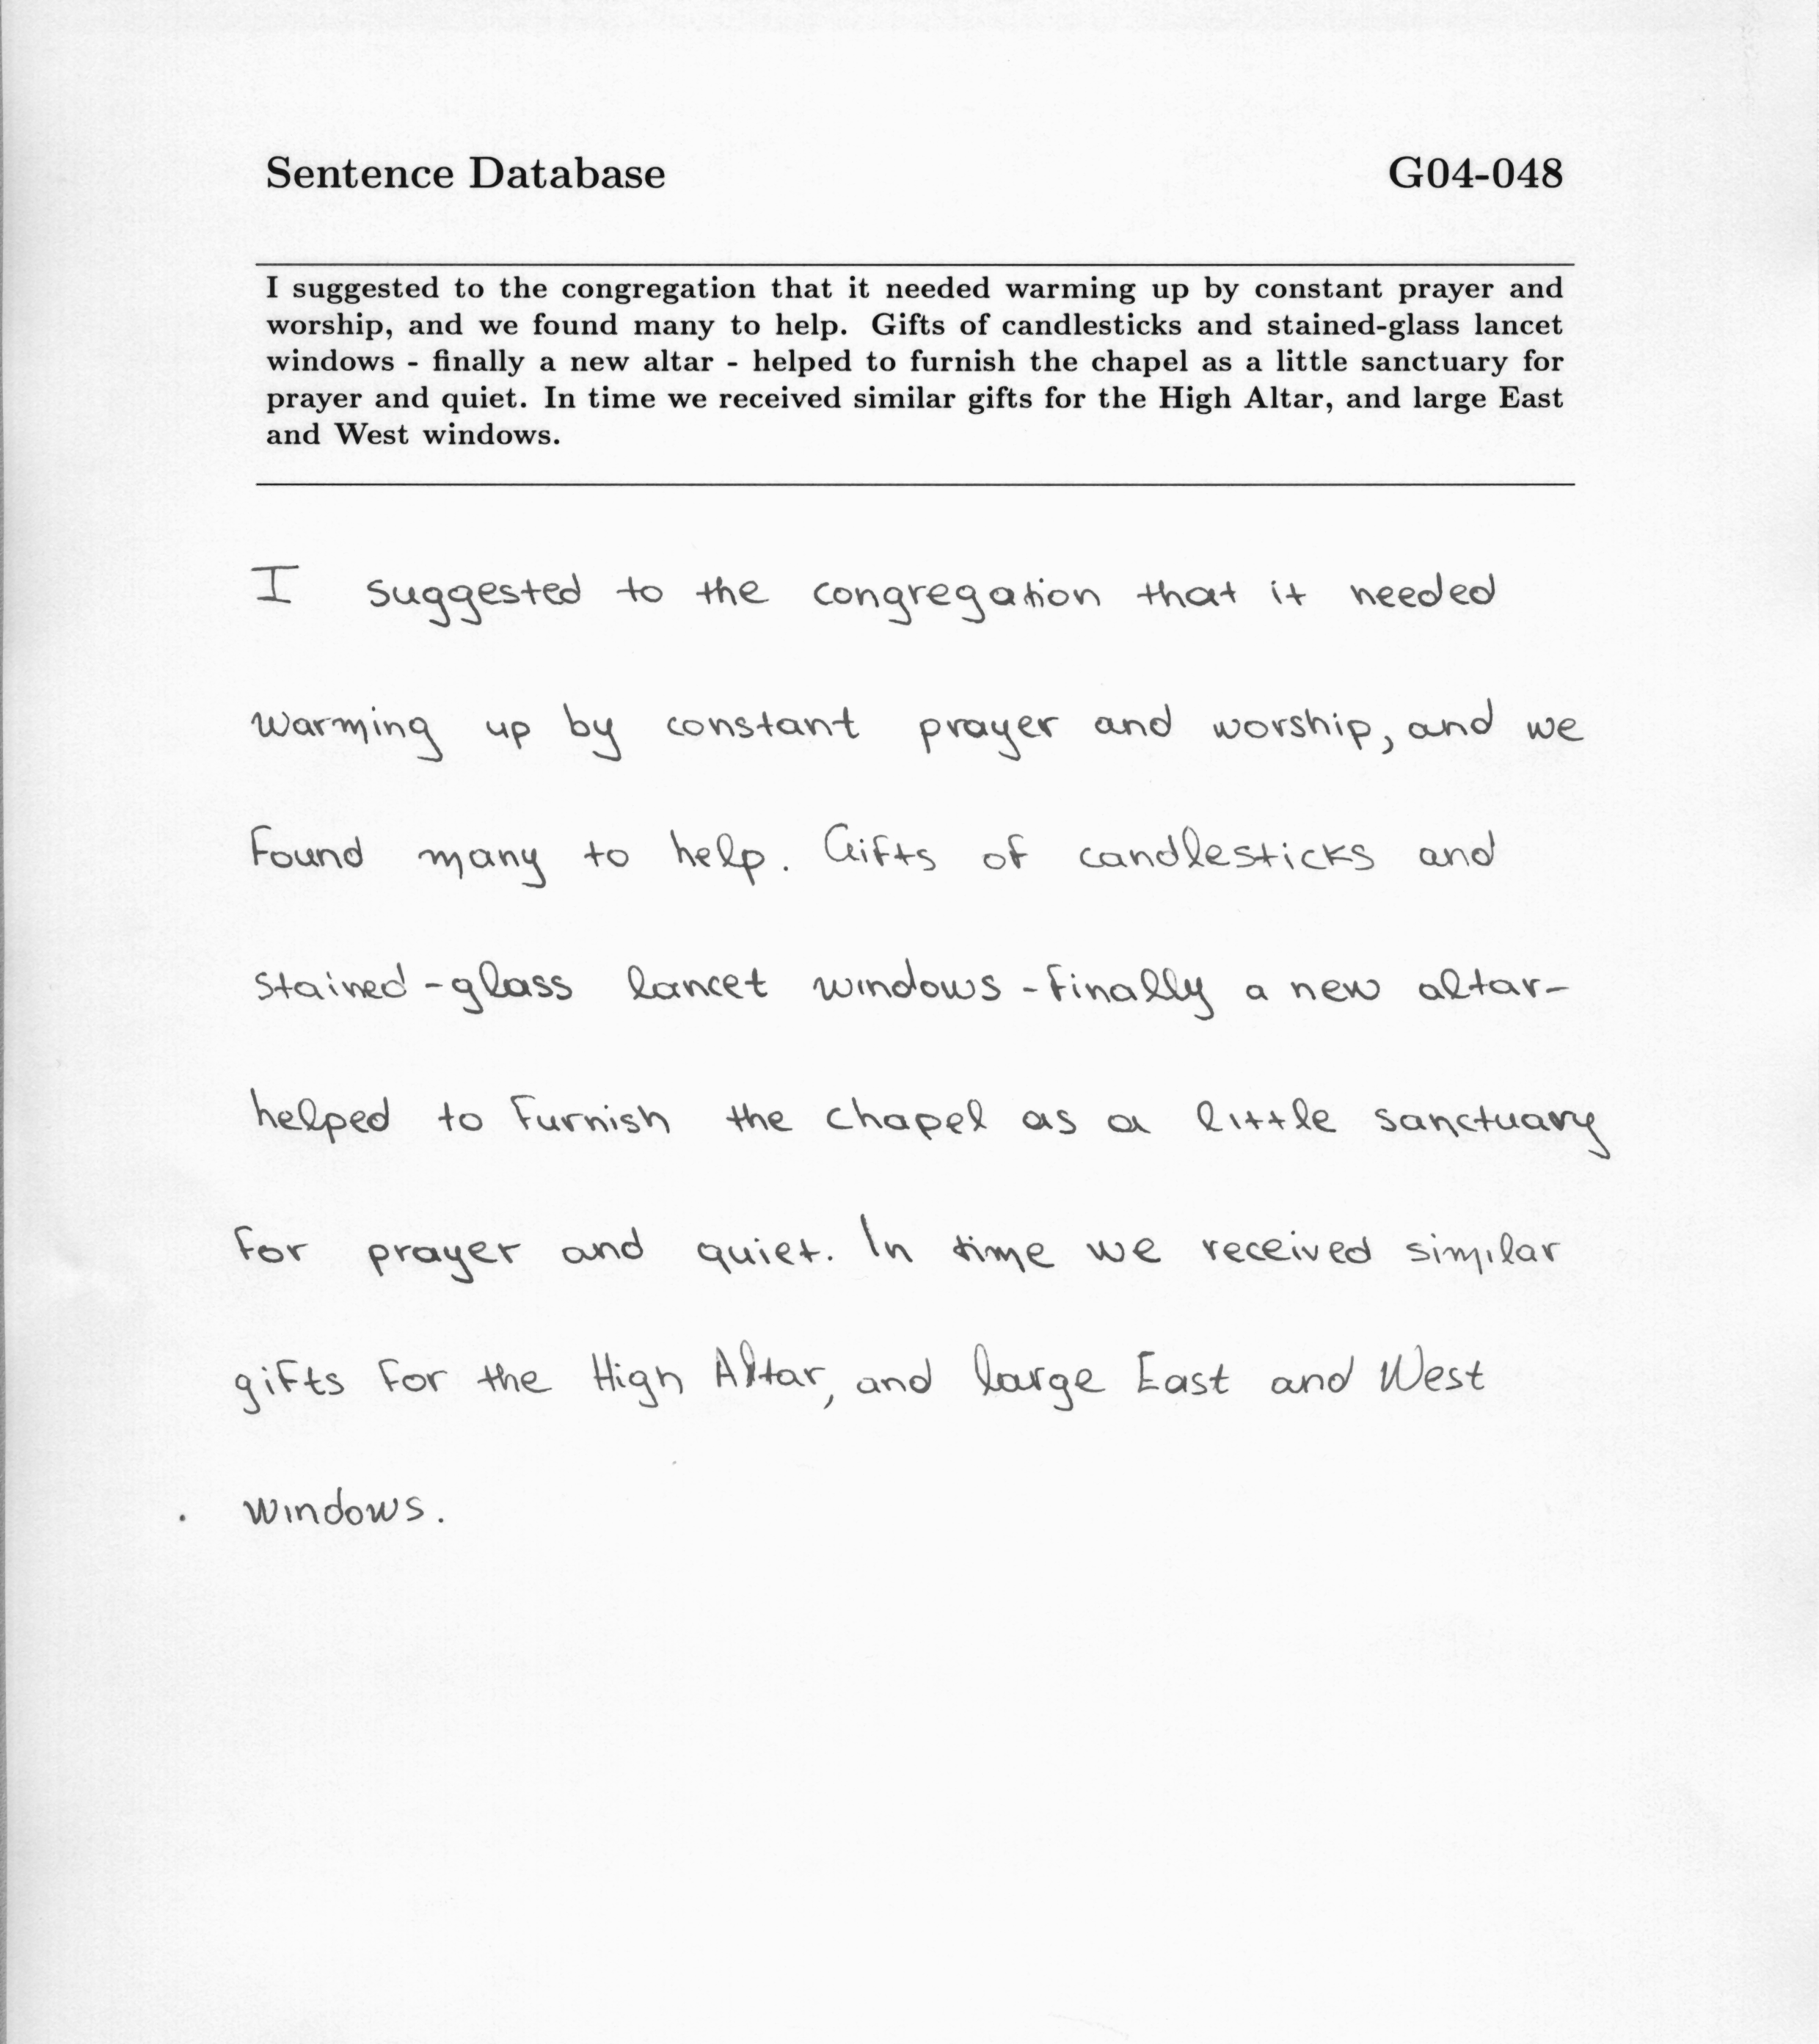 Sentence Database G04-048
I suggested to the congregation that it needed warming up by constant prayer and
worship, and we found many to help. Gifts of candlesticks and stained-glass lancet
windows - finally a new altar - helped to furnish the chapel as a little sanctuary for
prayer and quiet. In time we received similar gifts for the High Altar, and large East
and West windows.
I suggested to the congregation that it needed
warming up by constant prayer and worship, and we
found many to help. Gifts of candlesticks and
stained-glass lancet windows - finally a new altar -
helped to furnish the chapel as a little sanctuary
for prayer and quiet. In time we received similar
gifts for the High Altar, and large East and West
windows.